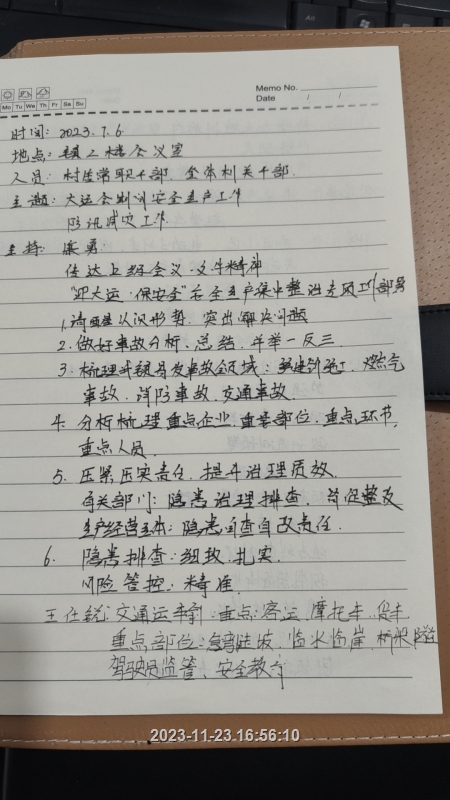 Memo No.
Mo Tu We Th Fr Sa Su
Date / /
时间: 2023.7.6
地点: 镇二楼会议室
人员: 村居常职干部、全体机关干部.
主题: 大运会期间安全生产工作
防汛减灾工作
主持: 勇
传达上级会议、文件精神
"迎大运·保安全"安全生产集中整治专项行动部署
1. 清醒认识形势, 突出解决问题
2. 做好事故分析、总结, 并举一反三
3. 梳理全镇易发事故领域: 建设施工、燃气
事故、消防事故、交通事故.
4. 分析梳理重点企业、重要部位、重点环节,
重点人员.
5. 压紧压实责任、提升治理质效.
有关部门: 隐患治理排查、督促整改
生产经营主体: 隐患自查自改责任.
6. 隐患排查: 细致、扎实.
风险管控: 精准.
王任 交通运输: 重点: 客运、摩托车、货车
重点部位: 急弯陡坡、临水临崖、桥梁隧道
驾驶员监管、安全教育
2023-11-23 16:56:10